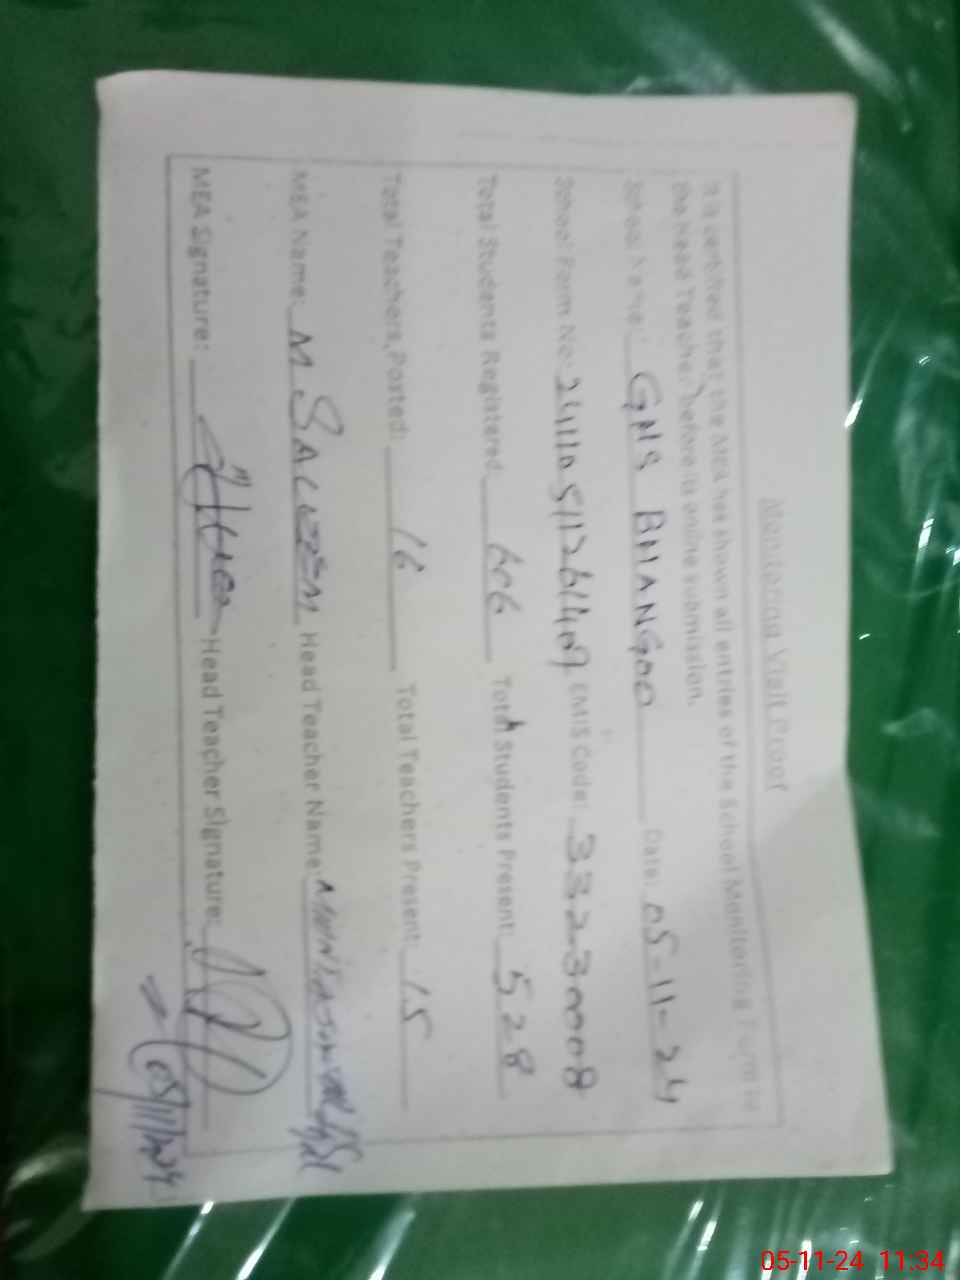 Monitoring Visit Proof
It is certified that the MEA has shown all entries of the School Monitoring Form to
the Head Teacher before its online submission.
School Name: GHS BHANGOO Date: 05-11-24
School Form No: EMIS Code: 33230008
Total Students Registered: 606 Total Students Present: 528
Total Teachers Posted: 16 Total Teachers Present: 15
MEA Name: M SALEEM Head Teacher Name:
MEA Signature: Head Teacher Signature:
05/11/2024
05-11-24 11:34